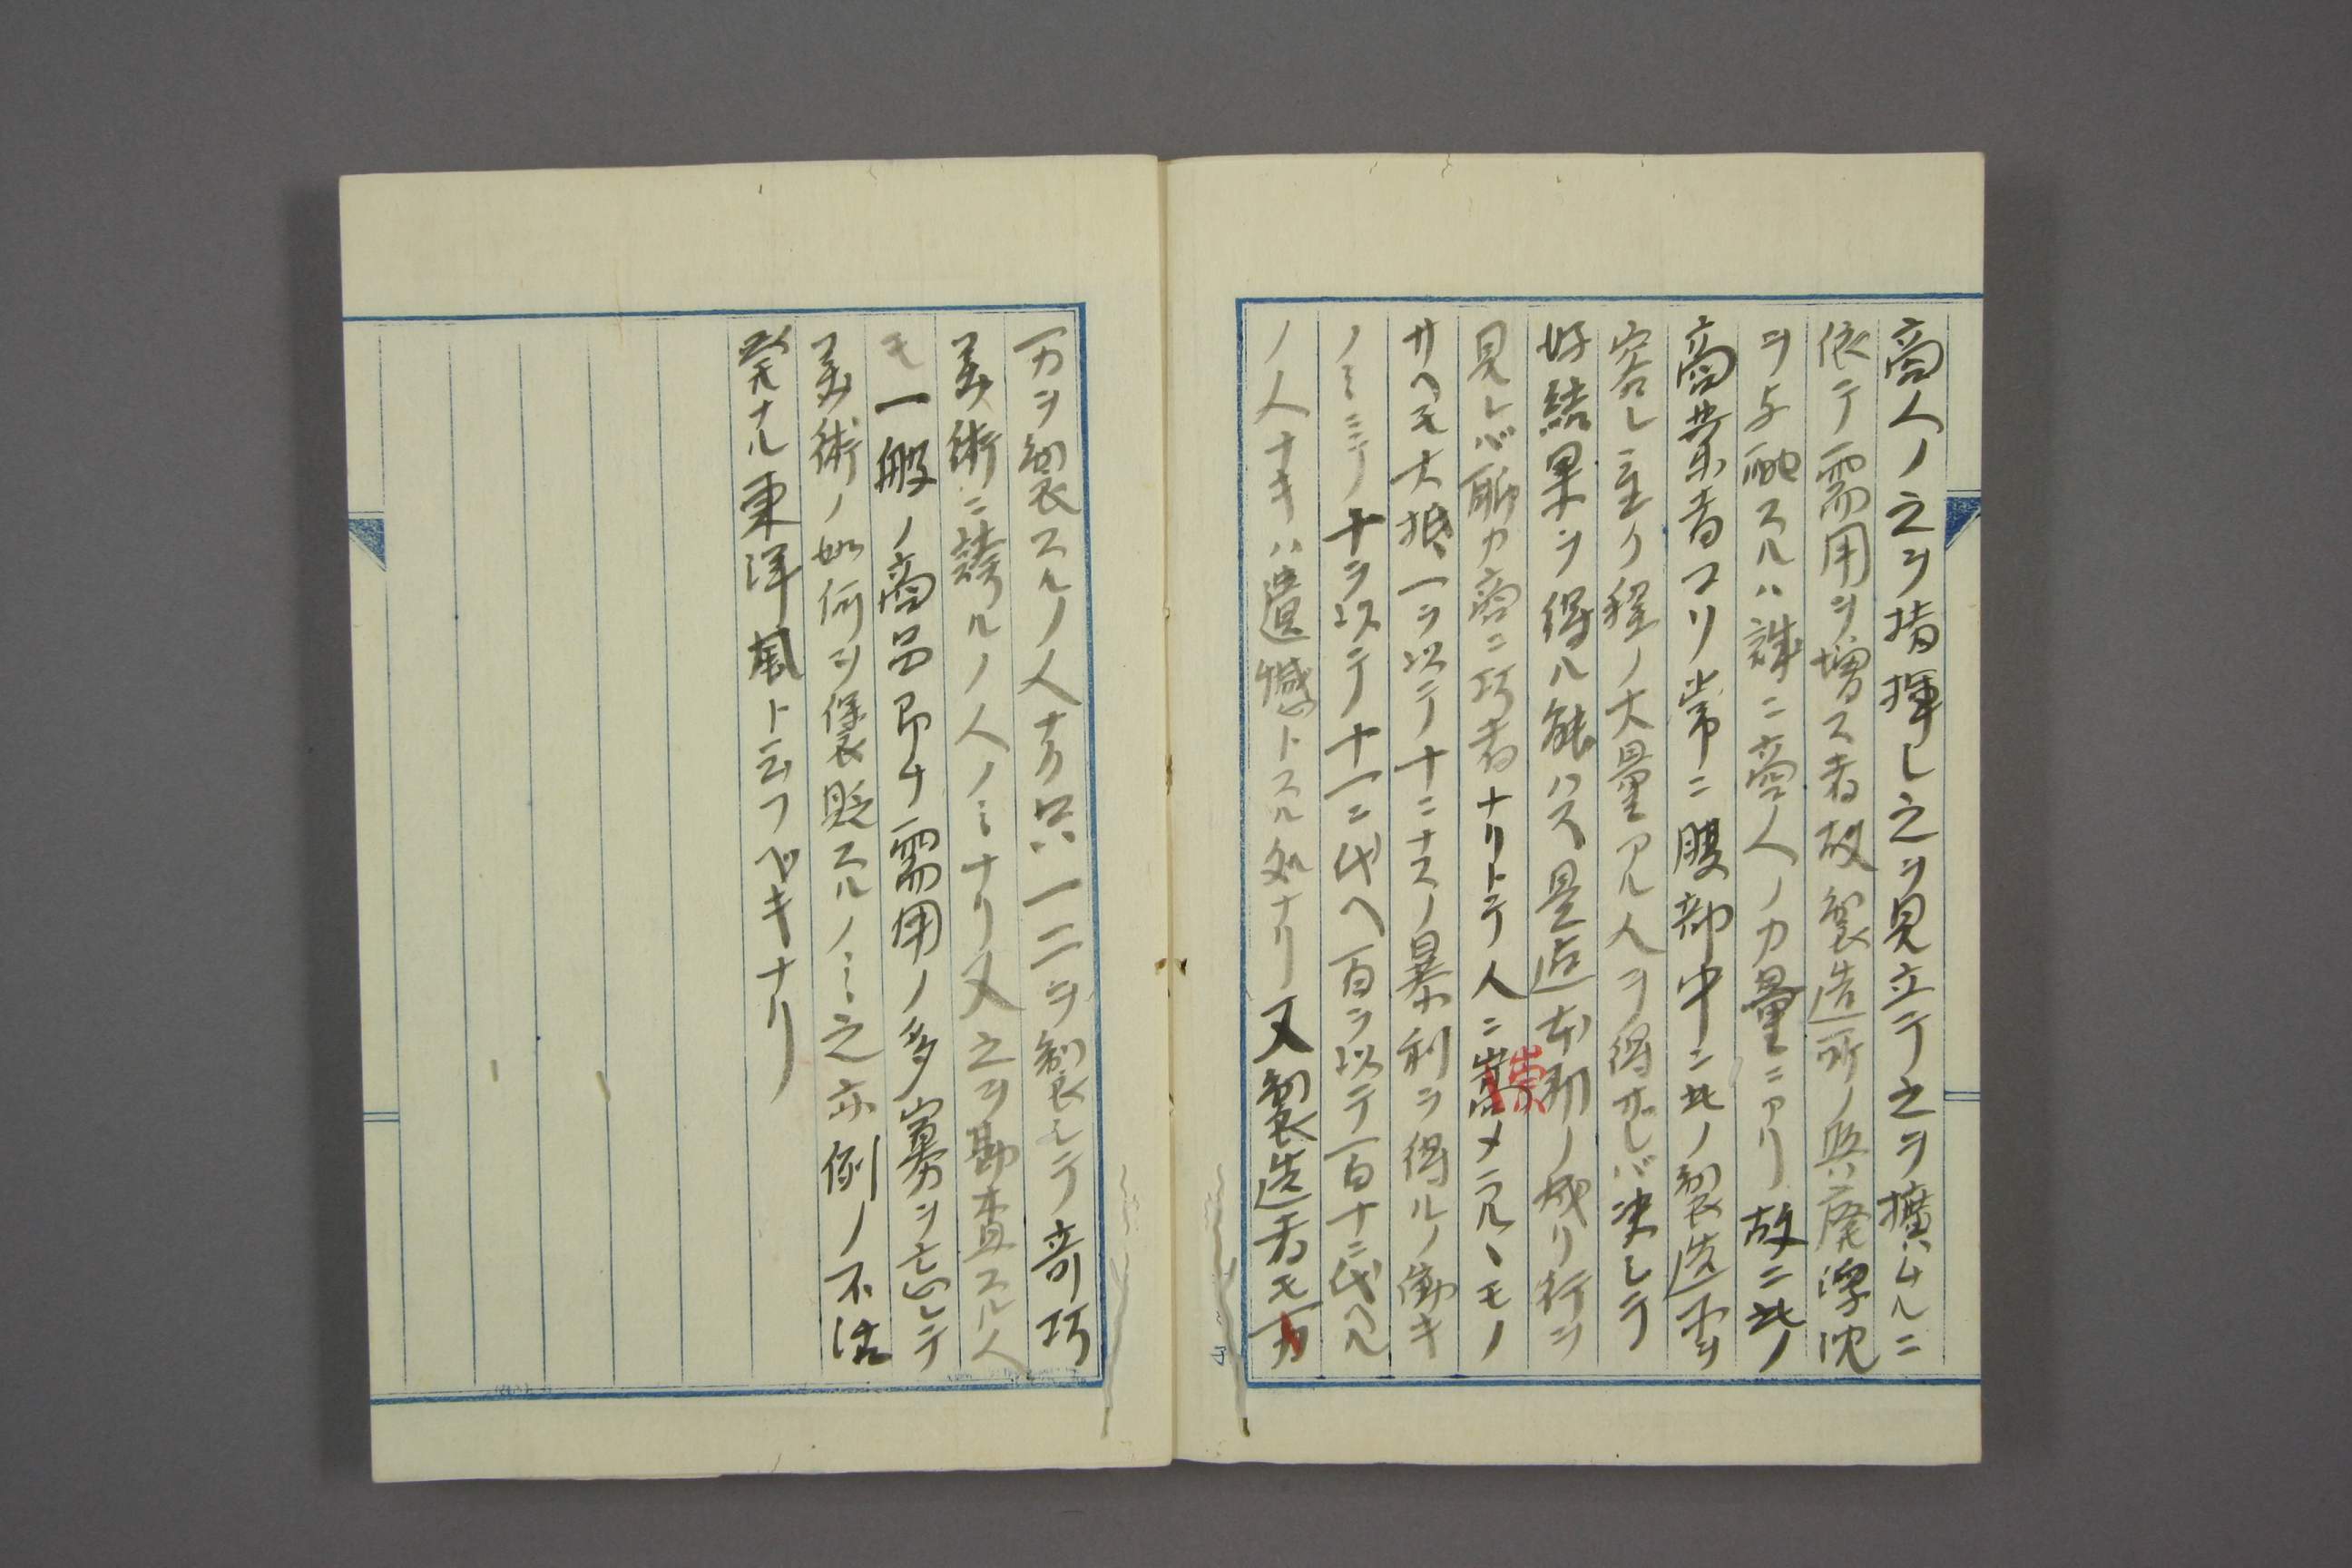 商人ノ之ヲ指揮シ之ヲ見立テ之ヲ擴ムルニ
依テ需用ヲ増ス者故製造所ノ興廃浮沈
ヲ与配スルハ誠ニ商人ノ力量ニアリ故ニ此ノ
商業者ヨリ常ニ腹部中ニ此ノ製造所ヲ
容レ重ク程ノ大量アル人ヲ得ザレバ決シテ
好結果ヲ得ル能ハス是迠本那ノ成リ行ヲ
見レバ聊カ商ニ巧者ナリトテ人ニ嵩メラル丶モノ
サヘモ大抵一ヲ以テ十ニナスノ暴利ヲ得ルノ働キ
ノミニテ十ヲ以テ十一ニ代ヘ百ヲ以テ百十ニ代ヘル
ノ人ナキハ遺憾トスル処ナリ又製造者モ万
万ヲ製スルノ人ナク只一二ヲ製シテ奇巧
美術ニ誇ルノ人ノミナリ又之ヲ勘査スル人
モ一般ノ商品即チ需用ノ多寡ヲ忘レテ
美術ノ如何ヲ褒貶スルノミ之亦例ノ不活
発ナル東洋風ト云フベキナリ